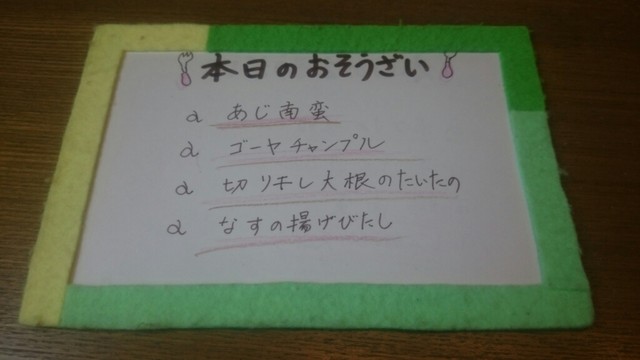 本日のおそうざい
あじ南蛮
ゴーヤチャンプル
切り干し大根のたいたの
なすの揚げびたし